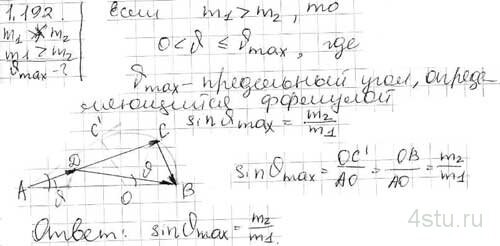 1.192.
m₁ > m₂
m₁ > m₂
ϑmax - ?
Если m₁ > m₂, то
0 < ϑ ≤ ϑmax, где
ϑmax - предельный угол, опреде
ляющийся формулой
sinϑmax = m₂/m₁
C'
C
D
A
ϑ
ϑ
O
B
sinϑmax = OC'/AO = OB/AO = m₂/m₁
Ответ: sinϑmax = m₂/m₁.
4stu.ru